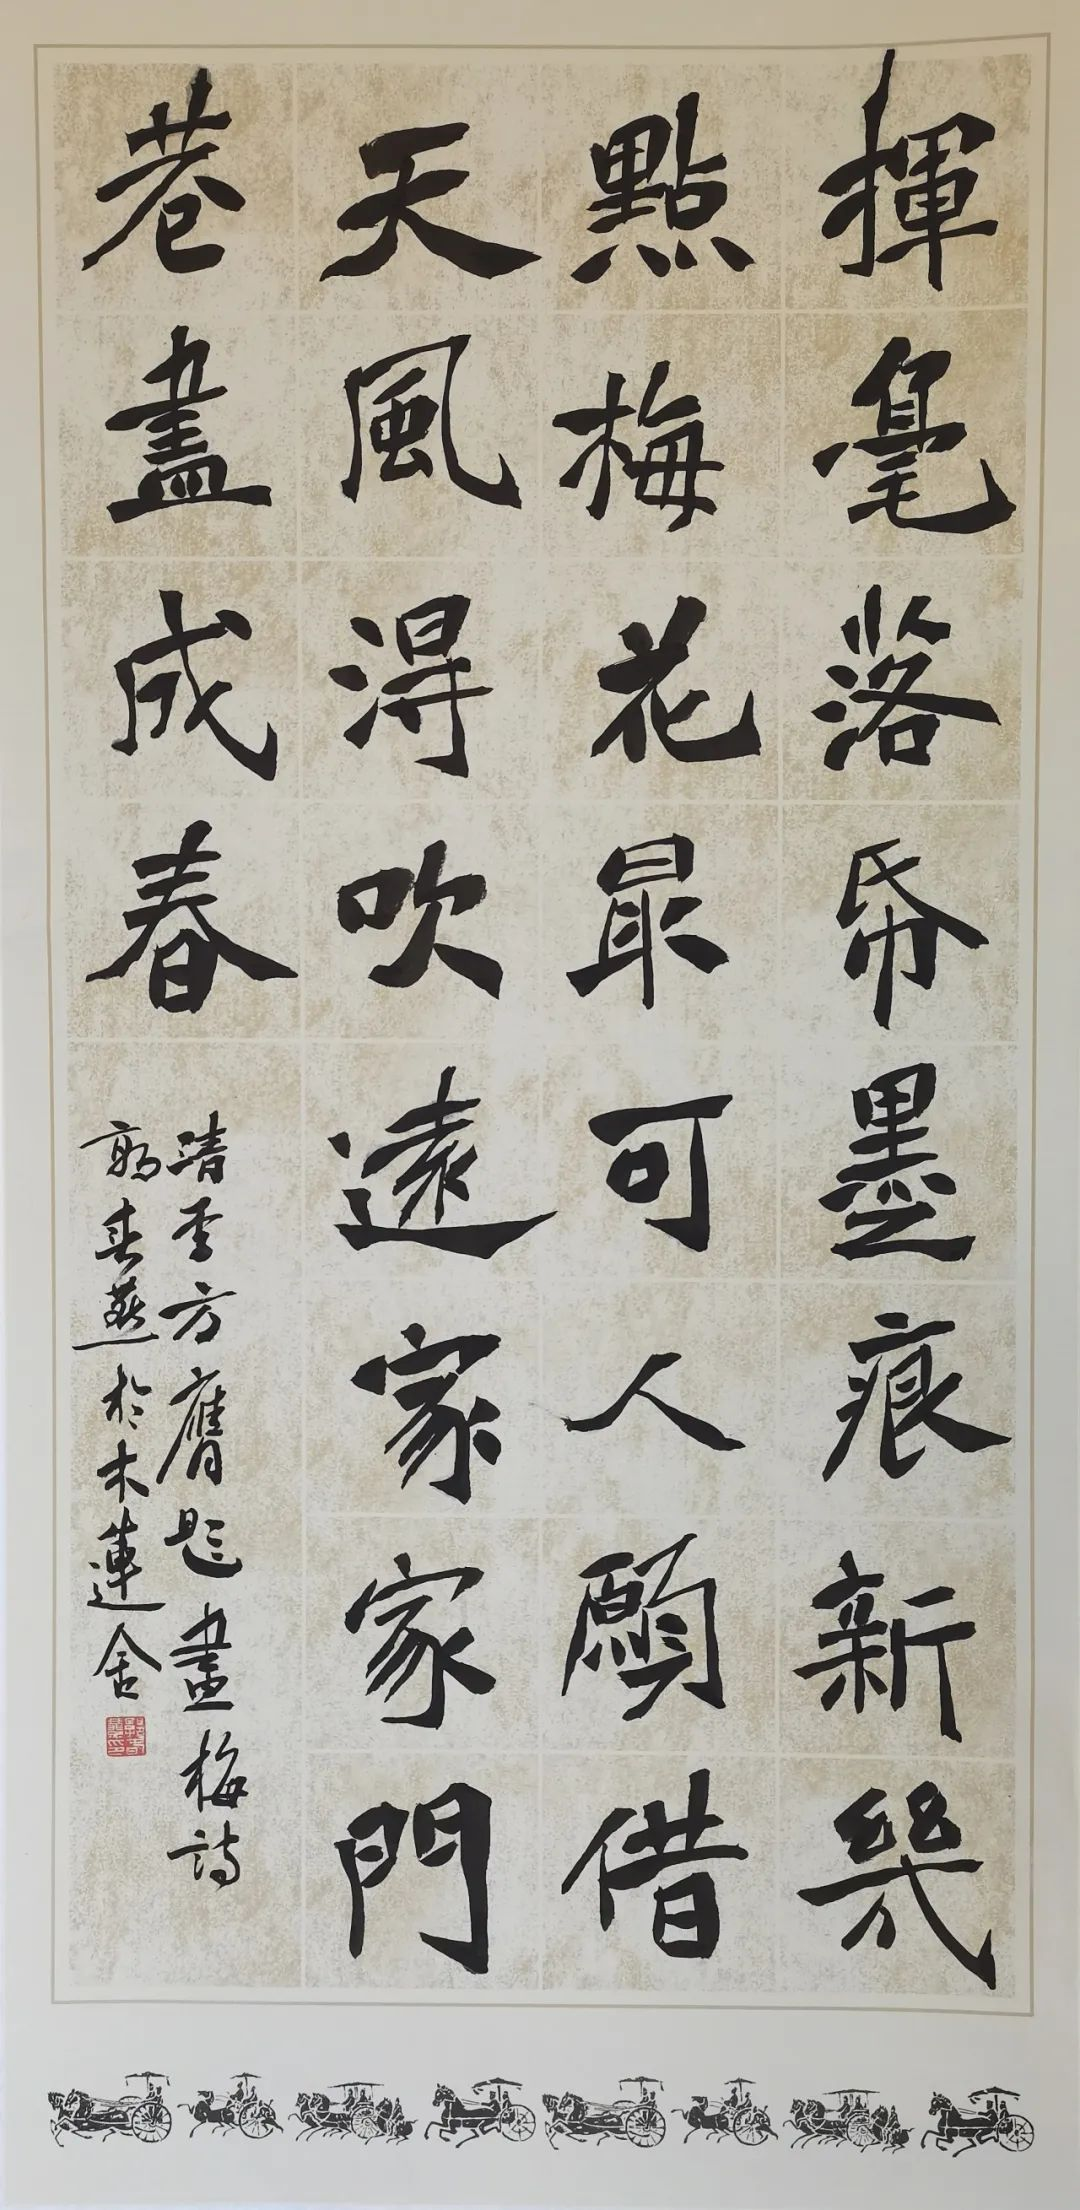 揮毫落帋墨痕新幾
點梅花最可人願借
天風得吹遠家家門
巷盡成春
清李方膺題畫梅詩
郭春燕於木蓮舍